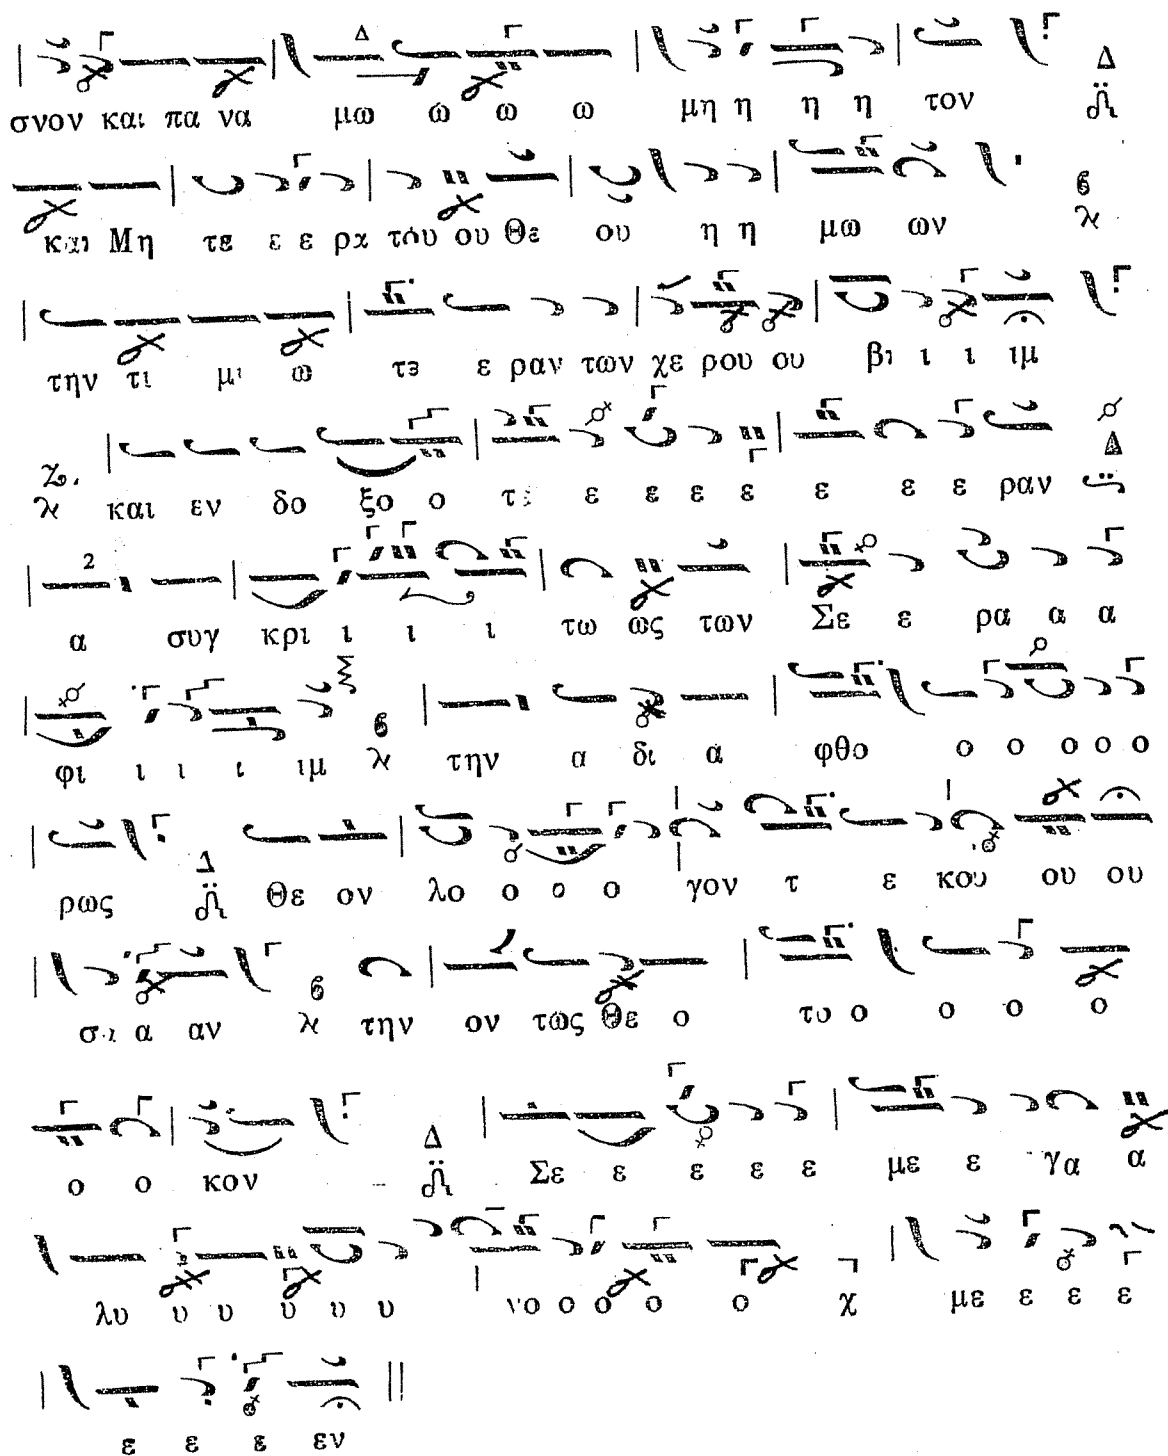 σνον και πα να μω ω ω ω μη η η η τον Δ
και Μη τε ε ε ρα του ου Θε ου η η μω ων
την τι μι ω τε ε ραν των χε ρου ου βι ι ι ιμ
και εν δο ξο ο τε ε ε ε ε ε ε ε ραν Δ
α συγ κρι ι ι ι τω ως των Σε ε ρα α α
φι ι ι ι ιμ την α δι α φθο ο ο ο ο ο
ρως Δ Θε ον λο ο ο ο γον τ ε κου ου ου
σα α αν την ον τως Θε ο το ο ο ο ο
ο ο κον Δ Σε ε ε ε ε με ε γα α
λυ υ υ υ υ υ νο ο ο ο ο χ με ε ε ε
ε ε ε εν